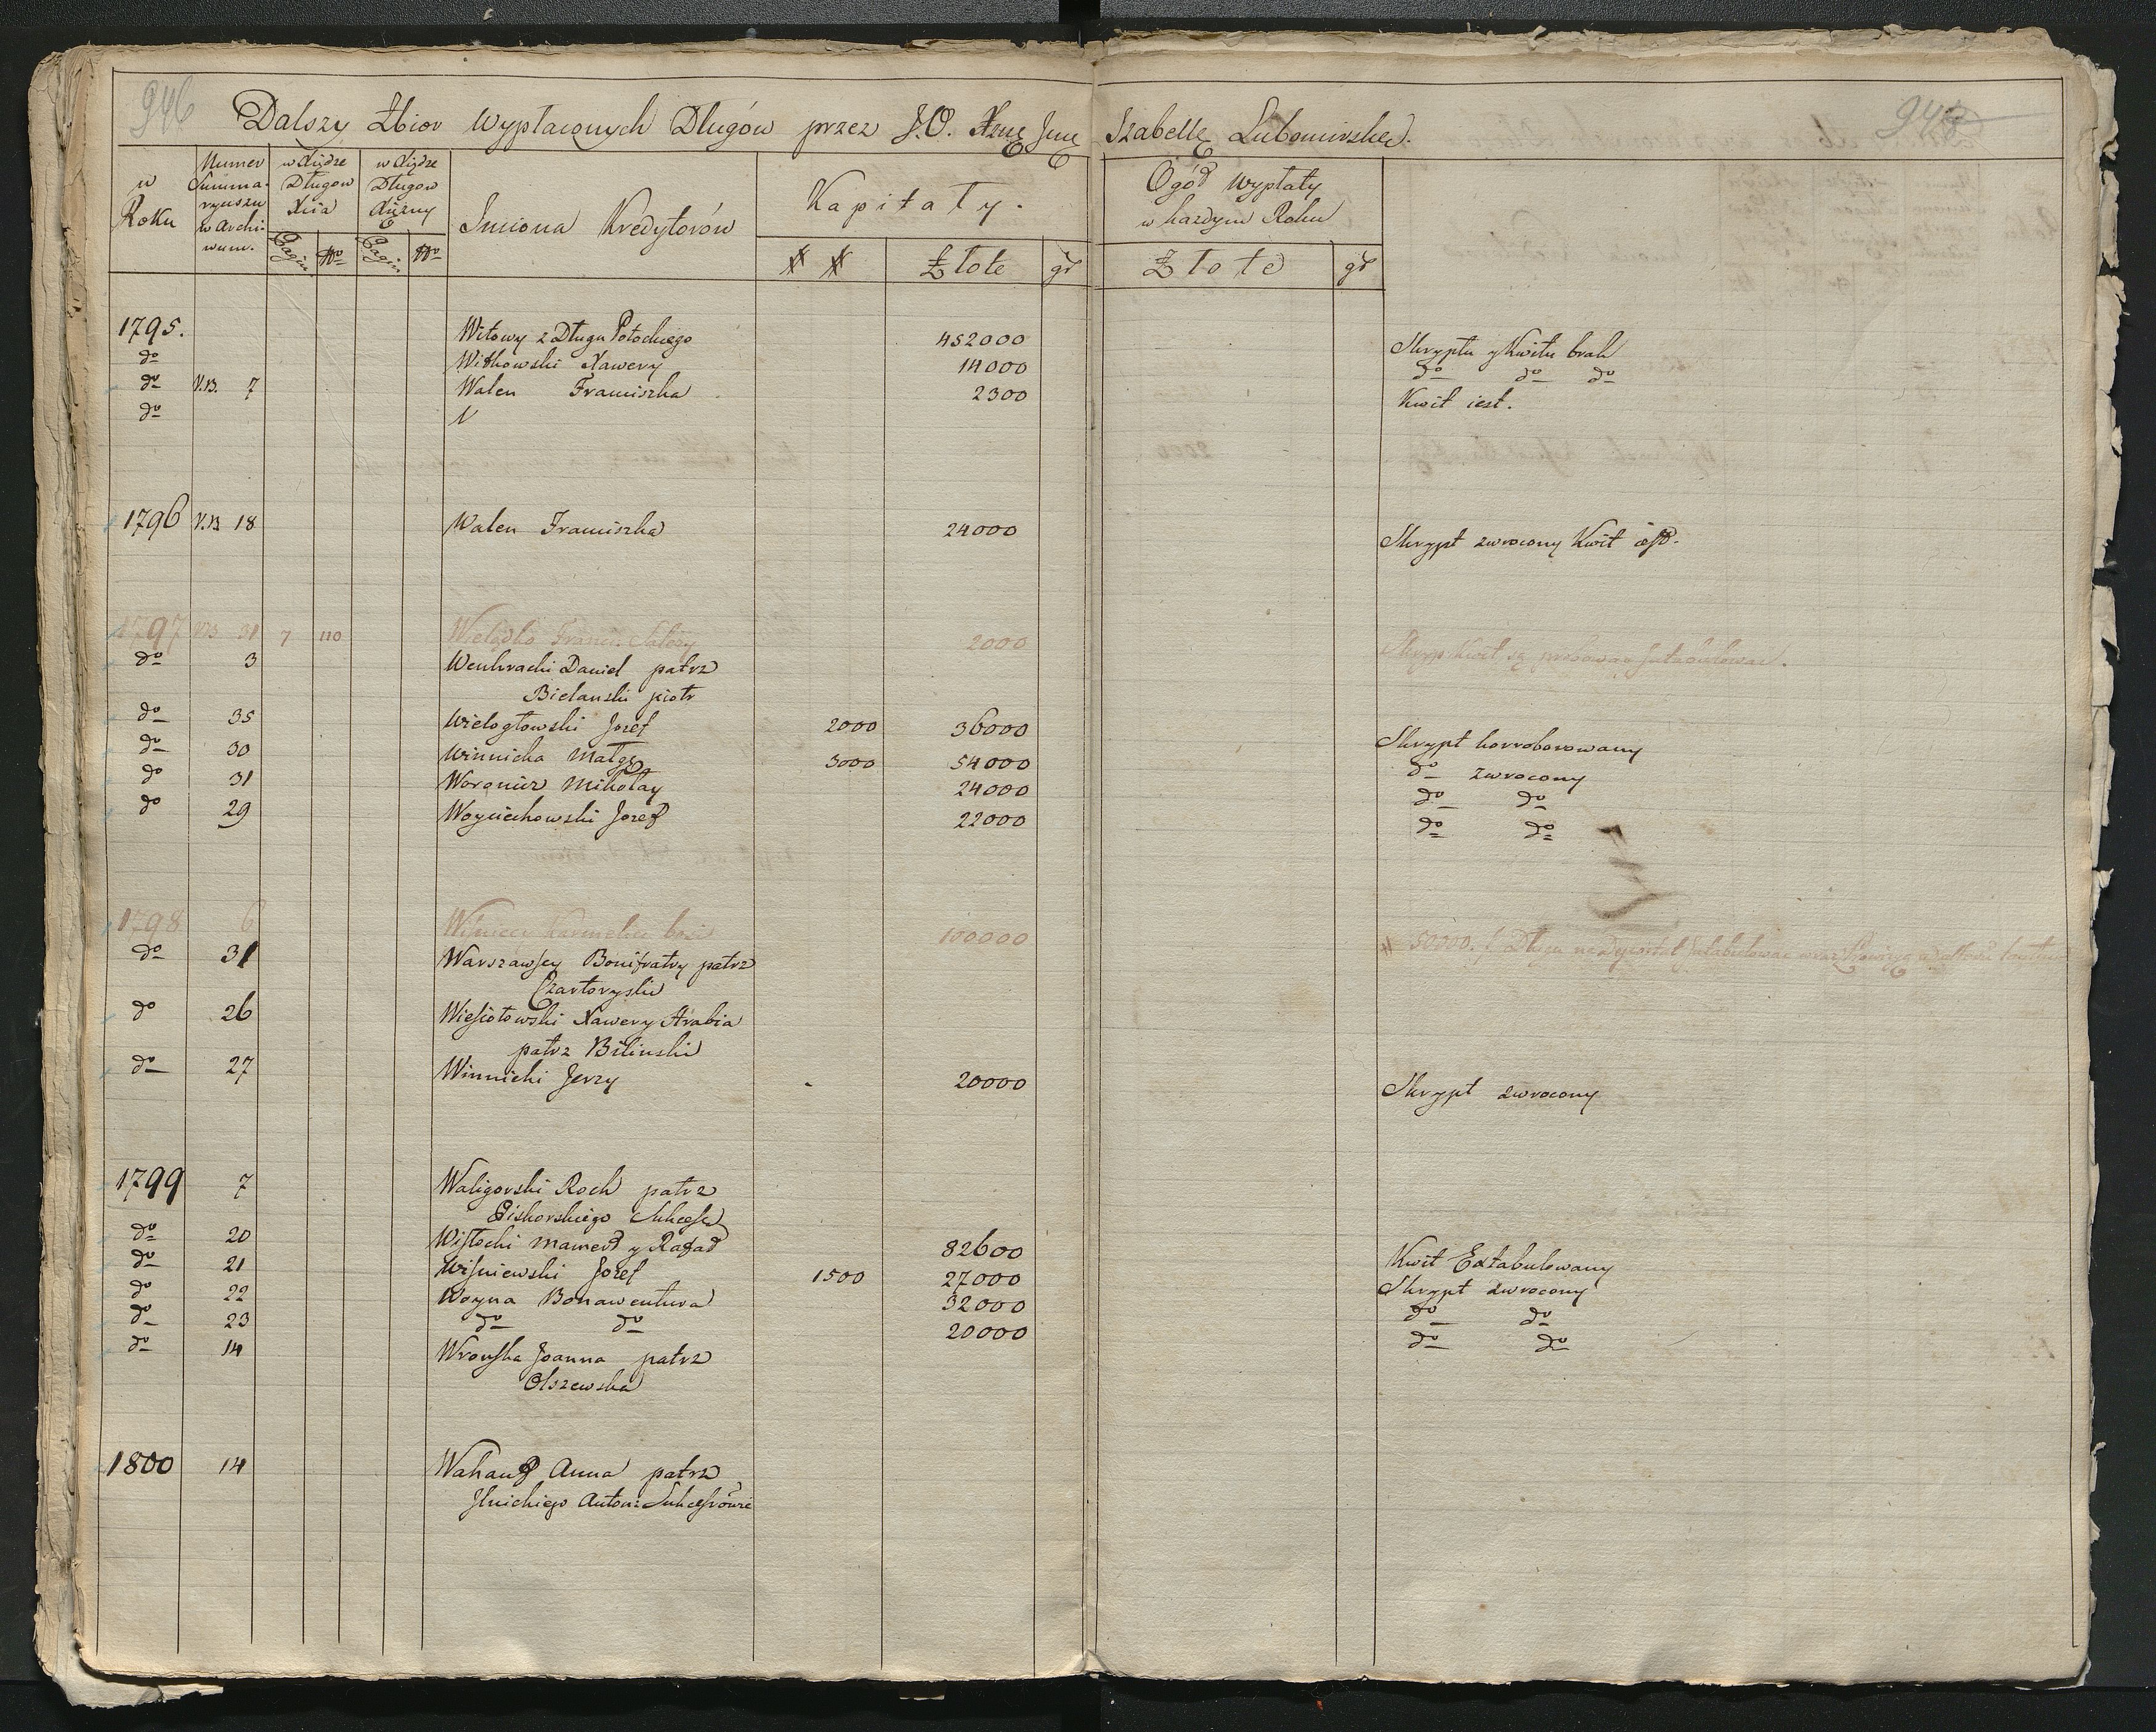 946
Dalszy Zbior Wypłaconych Długów przez J.O. Xznę Jmę Izabellę Lubomirską.
w Roku
Numer Summaryuszu w Archiwum.
w Xiędze Długow Xcia
w Xiędze Długow Xiężny
Pagin No Pagin No
Imiona Kredytorów
Kapitały.
Złote gr
Ogół Wypłaty w kazdym Roku
Złote gr
1795. Witowy z Długu Potockiego 452000 Skryptu y Kwitu brak
do Witkowski Xawery 14000 do do do
do V.B. 7 Walen Franciszka 2300 Kwit iest.
do V
1796 V.B 18 Walen Franciszka 24000 Skrypt zwrocony Kwit iest.
1797 VB 31 7 110 2000 Skryp. Kwit są
do 3 Daniel patrz
Bielanski piotr
do 35 Wielogłowski Jozef 2000 36000 Skrypt korroborowany
do 30 Winnicka Małgo 3000 54000 do zwrocony
do 31 Woronicz Mikołay 24000 do do
do 29 Woyciechowski Jozef 22000 do do
1798 6 Karmelici bosi 100000 # 50000. f. Długu
do 31 Warszawscy Bonifratry patrz
Czartoryski
do 26 Wiesiołowski Xawery Hrabia
patrz Bilinski
do 27 Winnicki Jerzy 20000 Skrypt zwrocony
1799 7 Waligorski Roch patrz
Piskorskiego Sukces
do 20 Wisłocki Mamert y Rafał 82600 Kwit Extabulowany
do 21 Wisniewski Jozef 1500 27000 Skrypt zwrocony
do 22 Woyna Bonawentura 32000 do do
do 23 do do 20000 do do
do 14 Wronska Joanna patrz
Olszewska
1800 14 Anna patrz
Ilnickiego Anton: Sukcessorowie